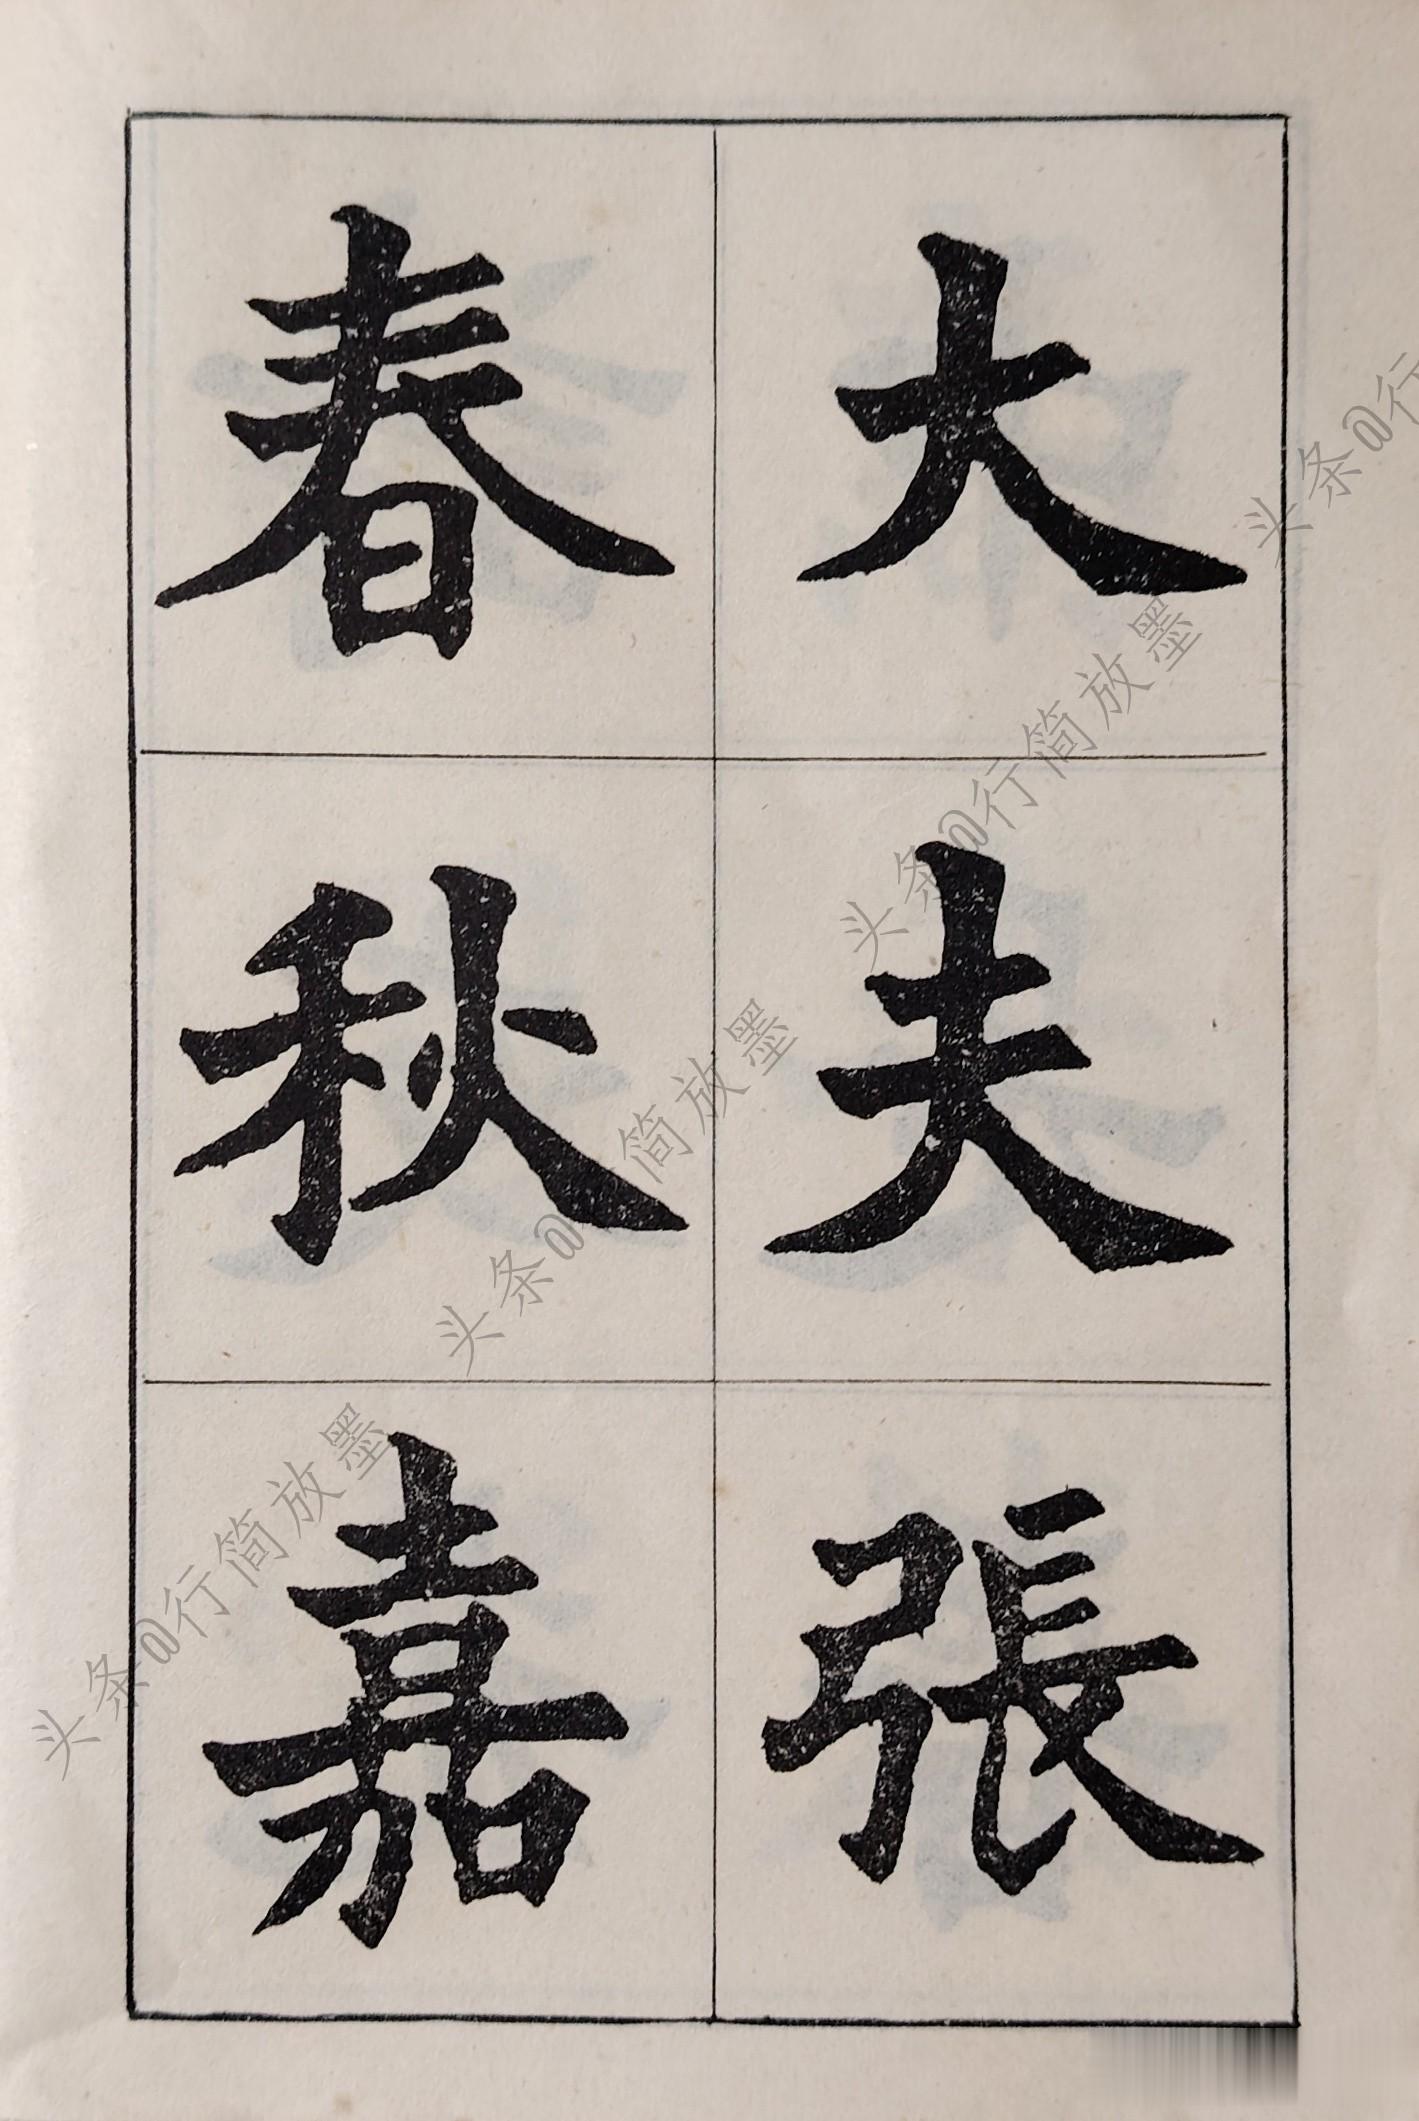 大夫張
春秋嘉
头条@行简放墨
头条@行简放墨
头条@行简放墨
头条@行